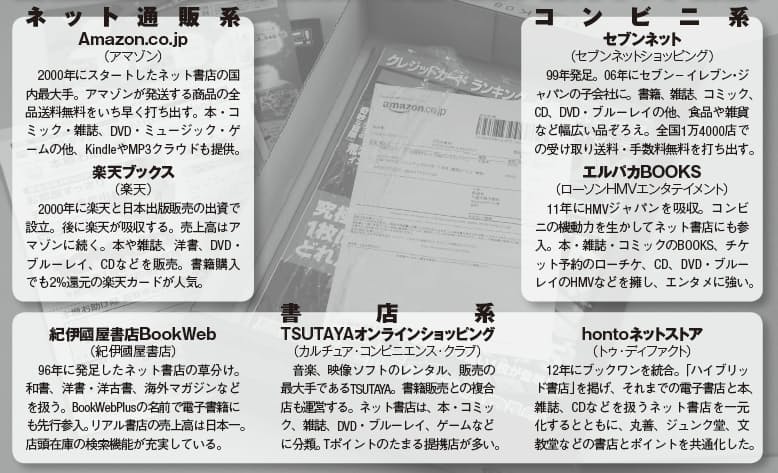 ネット通販系
Amazon.co.jp
(アマゾン)
2000年にスタートしたネット書店の国
内最大手。アマゾンが発送する商品の全
品送料無料をいち早く打ち出す。本・コ
ミック・雑誌、DVD・ミュージック・ゲ
ームの他、KindleやMP3クラウドも提供。
楽天ブックス
(楽天)
2000年に楽天と日本出版販売の出資で
設立。後に楽天が吸収する。売上高はア
マゾンに続く。本や雑誌、洋書、DVD・
ブルーレイ、CDなどを販売。書籍購入
でも2%還元の楽天カードが人気。
コンビニ系
セブンネット
(セブンネットショッピング)
99年発足。06年にセブン－イレブン・ジ
ャパンの子会社に。書籍、雑誌、コミック、
CD、DVD・ブルーレイの他、食品や雑貨
など幅広い品ぞろえ。全国1万4000店で
の受け取り送料・手数料無料を打ち出す。
エルパカBOOKS
(ローソンHMVエンタテイメント)
11年にHMVジャパンを吸収。コンビ
ニの機動力を生かしてネット書店にも参
入。本・雑誌・コミックのBOOKS、チケ
ット予約のローチケ、CD、DVD・ブルー
レイのHMVなどを擁し、エンタメに強い。
クレジットカード ランキング
amazon.co.jp
書店系
紀伊國屋書店BookWeb
(紀伊國屋書店)
96年に発足したネット書店の草分け。
和書、洋書・洋古書、海外マガジンなど
を扱う。BookWebPlusの名前で電子書籍に
も先行参入。リアル書店の売上高は日本一。
店頭在庫の検索機能が充実している。
TSUTAYAオンラインショッピング
(カルチュア・コンビニエンス・クラブ)
音楽、映像ソフトのレンタル、販売の
最大手であるTSUTAYA。書籍販売との複合
店も運営する。ネット書店は、本・コミッ
ク、雑誌、DVD・ブルーレイ、ゲームなど
に分類。Tポイントのたまる提携店が多い。
hontoネットストア
(トゥ・ディファクト)
12年にブックワンを統合。「ハイブリッ
ド書店」を掲げ、それまでの電子書店と本、
雑誌、CDなどを扱うネット書店を一元
化するとともに、丸善、ジュンク堂、文
教堂などの書店とポイントを共通化した。